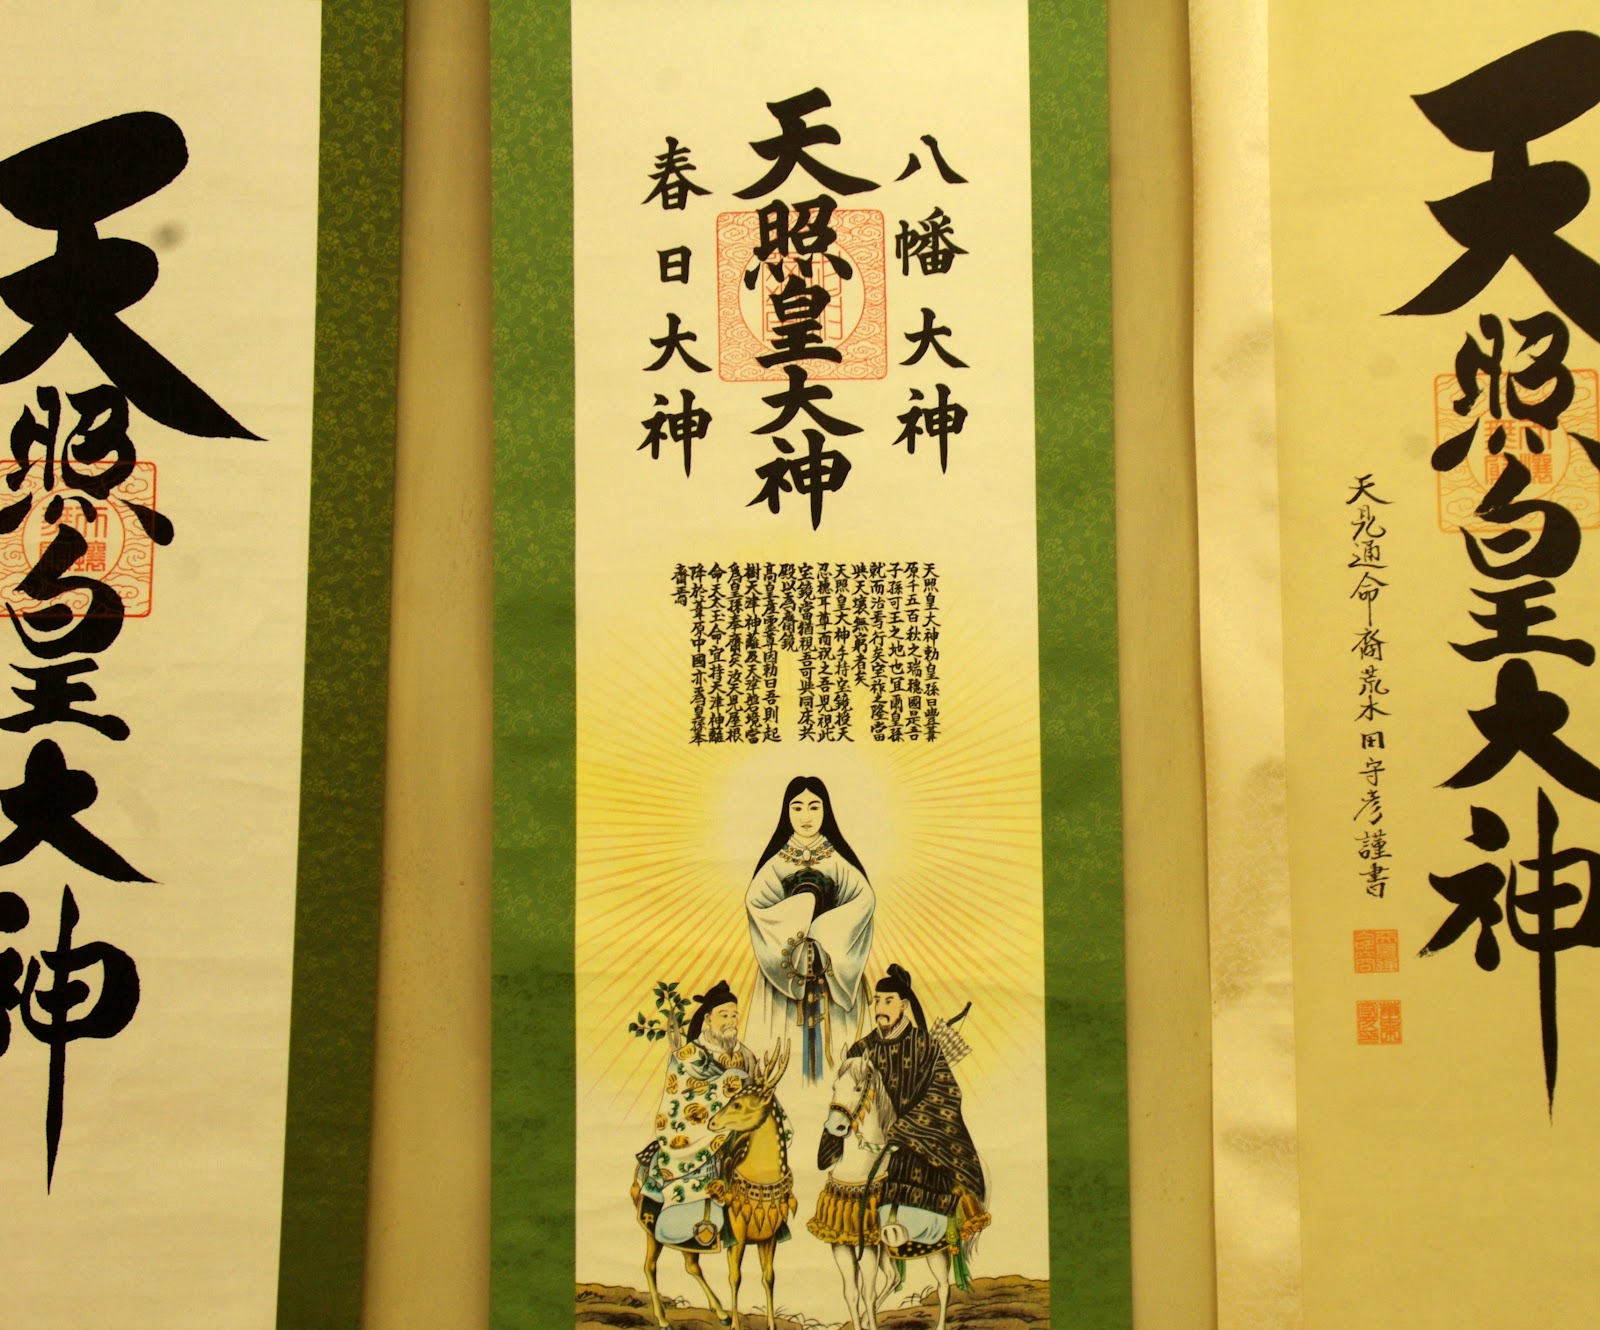 天照皇大神
天見通命裔荒木田守彦謹書
八幡大神
天照皇大神
春日大神
天照皇大神勅皇孫曰豊葦
原千五百秋之瑞穂國是吾
子孫可王之地也宜爾皇孫
就而治焉行矣宝祚之隆當
與天壌無窮者矣
天照皇大神手持宝鏡授天
忍穂耳尊而祝之吾児視此
宝鏡當猶視吾可與同床共
殿以為齋鏡
高皇産霊尊因勅曰吾則起
樹天津神籬及天津磐境當
為皇孫奉齋矣汝天児屋根
命天太玉命宜持天津神籬
降於葦原中國亦為皇孫奉
齋焉
天照皇大神